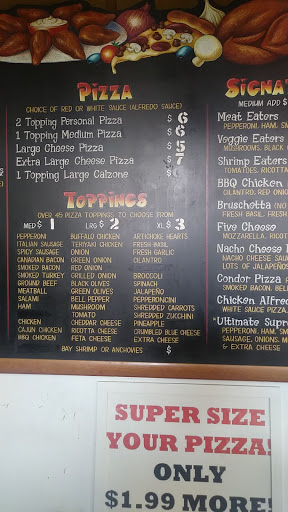 Pizza
CHOICE OF RED OR WHITE SAUCE (ALFREDO SAUCE)
2 Topping Personal Pizza $6
1 Topping Medium Pizza $6
Large Cheese Pizza $5
Extra Large Cheese Pizza $7
1 Topping Large Calzone $
Toppings
OVER 45 PIZZA TOPPINGS TO CHOOSE FROM
MED $1 LRG $2 XL $3
PEPPERONI BUFFALO CHICKEN ARTICHOKE HEARTS
ITALIAN SAUSAGE TERIYAKI CHICKEN FRESH BASIL
SPICY SAUSAGE ONION FRESH GARLIC
CANADIAN BACON GREEN ONION CILANTRO
SMOKED BACON RED ONION
SMOKED TURKEY GRILLED ONION BROCCOLI
GROUND BEEF BLACK OLIVES SPINACH
MEATBALL GREEN OLIVES JALAPEÑO
SALAMI BELL PEPPER PEPPERONCINI
HAM MUSHROOM SHREDDED CARROTS
TOMATO SHREDDED ZUCCHINI
CHICKEN CHEDDAR CHEESE PINEAPPLE
CAJUN CHICKEN RICOTTA CHEESE CRUMBLED BLUE CHEESE
BBQ CHICKEN FETA CHEESE EXTRA CHEESE
BAY SHRIMP OR ANCHOVIES $
Signa
MEDIUM ADD $
Meat Eaters
PEPPERONI, HAM, SM
Veggie Eaters
MUSHROOMS, BLACK O
Shrimp Eaters
TOMATOES, RICOTTA
BBQ Chicken
CILANTRO, RED ONION
Bruschetta (NO
FRESH BASIL, FRESH
Five Cheese
MOZZARELLA, RICOT
Nacho Cheese
NACHO CHEESE SAUC
LOTS OF JALAPEÑOS
Condor Pizza
SMOKED BACON, BELL
Chicken Alfred
WHITE SAUCE PIZZA
"Ultimate Supre
PEPPERONI, HAM, SM
SAUSAGE, ONIONS, M
& EXTRA CHEESE
SUPER SIZE
YOUR PIZZA!
ONLY
$1.99 MORE!